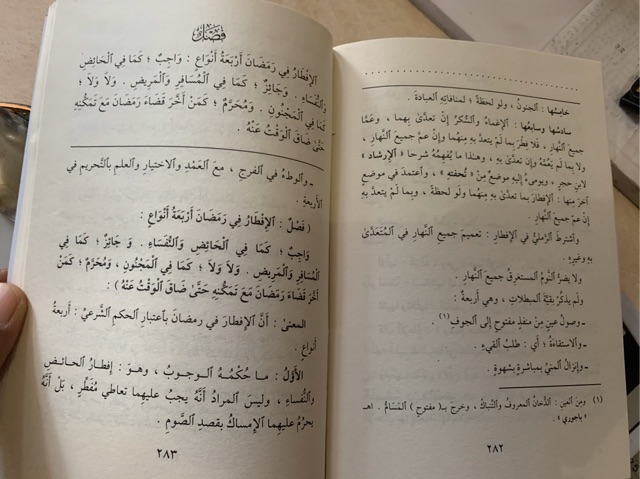 خامِسُها : ٱلجنونُ ، ولو لحظةً ؛ لمنافاتِهِ ٱلعبادةَ .
سادسُها وسابعُها : ٱلإغماءُ وٱلسُّكرُ إن تعدَّىٰ بهِما ، وعَمَّا
جميعَ ٱلنَّهارِ ، فلا فِطرَ بما لم يتعدَّ بهِ منهُما وإن عمَّ جميعَ ٱلنَّهارِ ،
ولا بما لم يَعُمَّهُ وإن تعدَّىٰ بهِ ، وهٰذا ما يُفهِمُهُ شرحا « ٱلإرشادِ »
لابنِ حجرٍ ، ويومىءُ إليهِ موضعٌ مِنْ « تُحفتِهِ » ، وٱعتمدَ في موضعٍ
آخرَ منها : ٱلإفطارَ بما تعدَّىٰ بهِ منهُما ولَو لحظةً ، وبما لم يتعدَّ بهِ
إن عمَّ جميعَ ٱلنَّهارِ .
وٱشترطَ ٱلرَّمليُّ في ٱلإفطارِ : تعميمَ جميعِ ٱلنَّهارِ في ٱلمُتَعَدَّىٰ
بهِ وغيرِهِ .
ولا يضرُّ ٱلنَّومُ ٱلمستغرقُ جميعَ ٱلنَّهارِ .
ولم يذكُرْ بقيَّةَ ٱلمبطلاتِ ، وهي أربعةٌ :
ـ وصولُ عينٍ مِنْ منفذٍ مفتوحٍ إلى ٱلجوفِ(١) .
ـ وٱلاستقاءةُ ؛ أي : طلبُ ٱلقيءِ .
ـ وإنزالُ ٱلمنيِّ بمباشرةٍ بشهوةٍ .
(١) ومِنَ ٱلعينِ : ٱلدُّخانُ ٱلمعروفُ وٱلتُّنباكُ ، وخرجَ بـ( مفتوحٍ ) ٱلمَسَامُّ . اهـ
« باجوري » .
٢٨٢
فَصْلٌ
ٱلإِفْطَارُ فِي رَمَضَانَ أَرْبَعَةُ أَنْوَاعٍ : وَاجِبٌ ؛ كَمَا فِي ٱلْحَائِضِ
وَٱلنُّفَسَاءِ . وَجَائِزٌ ؛ كَمَا فِي ٱلْمُسَافِرِ وَٱلْمَرِيضِ . وَلَا وَلَا ؛
كَمَا فِي ٱلْمَجْنُونِ . وَمُحَرَّمٌ ؛ كَمَنْ أَخَّرَ قَضَاءَ رَمَضَانَ مَعَ تَمَكُّنِهِ
حَتَّىٰ ضَاقَ ٱلْوَقْتُ عَنْهُ .
ـ وٱلوطءُ في ٱلفرجِ ، معَ ٱلعَمْدِ وٱلاختيارِ وٱلعلمِ بٱلتَّحريمِ في
ٱلأربعةِ .
( فَصْلٌ : ٱلإِفْطَارُ فِي رَمَضَانَ أَرْبَعَةُ أَنْوَاعٍ :
وَاجِبٌ ؛ كَمَا فِي ٱلْحَائِضِ وَٱلنُّفَسَاءِ . وَ جَائِزٌ ؛ كَمَا فِي
ٱلْمُسَافِرِ وَٱلْمَرِيضِ . وَلَا وَلَا ؛ كَمَا فِي ٱلْمَجْنُونِ ، وَمُحَرَّمٌ ؛ كَمَنْ
أَخَّرَ قَضَاءَ رَمَضَانَ مَعَ تَمَكُّنِهِ حَتَّىٰ ضَاقَ ٱلْوَقْتُ عَنْهُ ) :
ٱلمعنىٰ : أنَّ ٱلإفطارَ في رمضانَ بٱعتبارِ ٱلحكمِ ٱلشَّرعيِّ : أربعةُ
أنواعٍ .
ٱلأوَّلُ : ما حُكْمُهُ ٱلوجوبُ ، وهوَ : إفطارُ ٱلحائضِ
وٱلنُّفساءِ ، وليسَ ٱلمرادُ أنَّهُ يجبُ عليهِما تعاطي مُفَطِّرٍ ، بَلْ أنَّهُ
يحرُمُ عليهِما ٱلإمساكُ بقصدِ ٱلصَّومِ .
٢٨٣